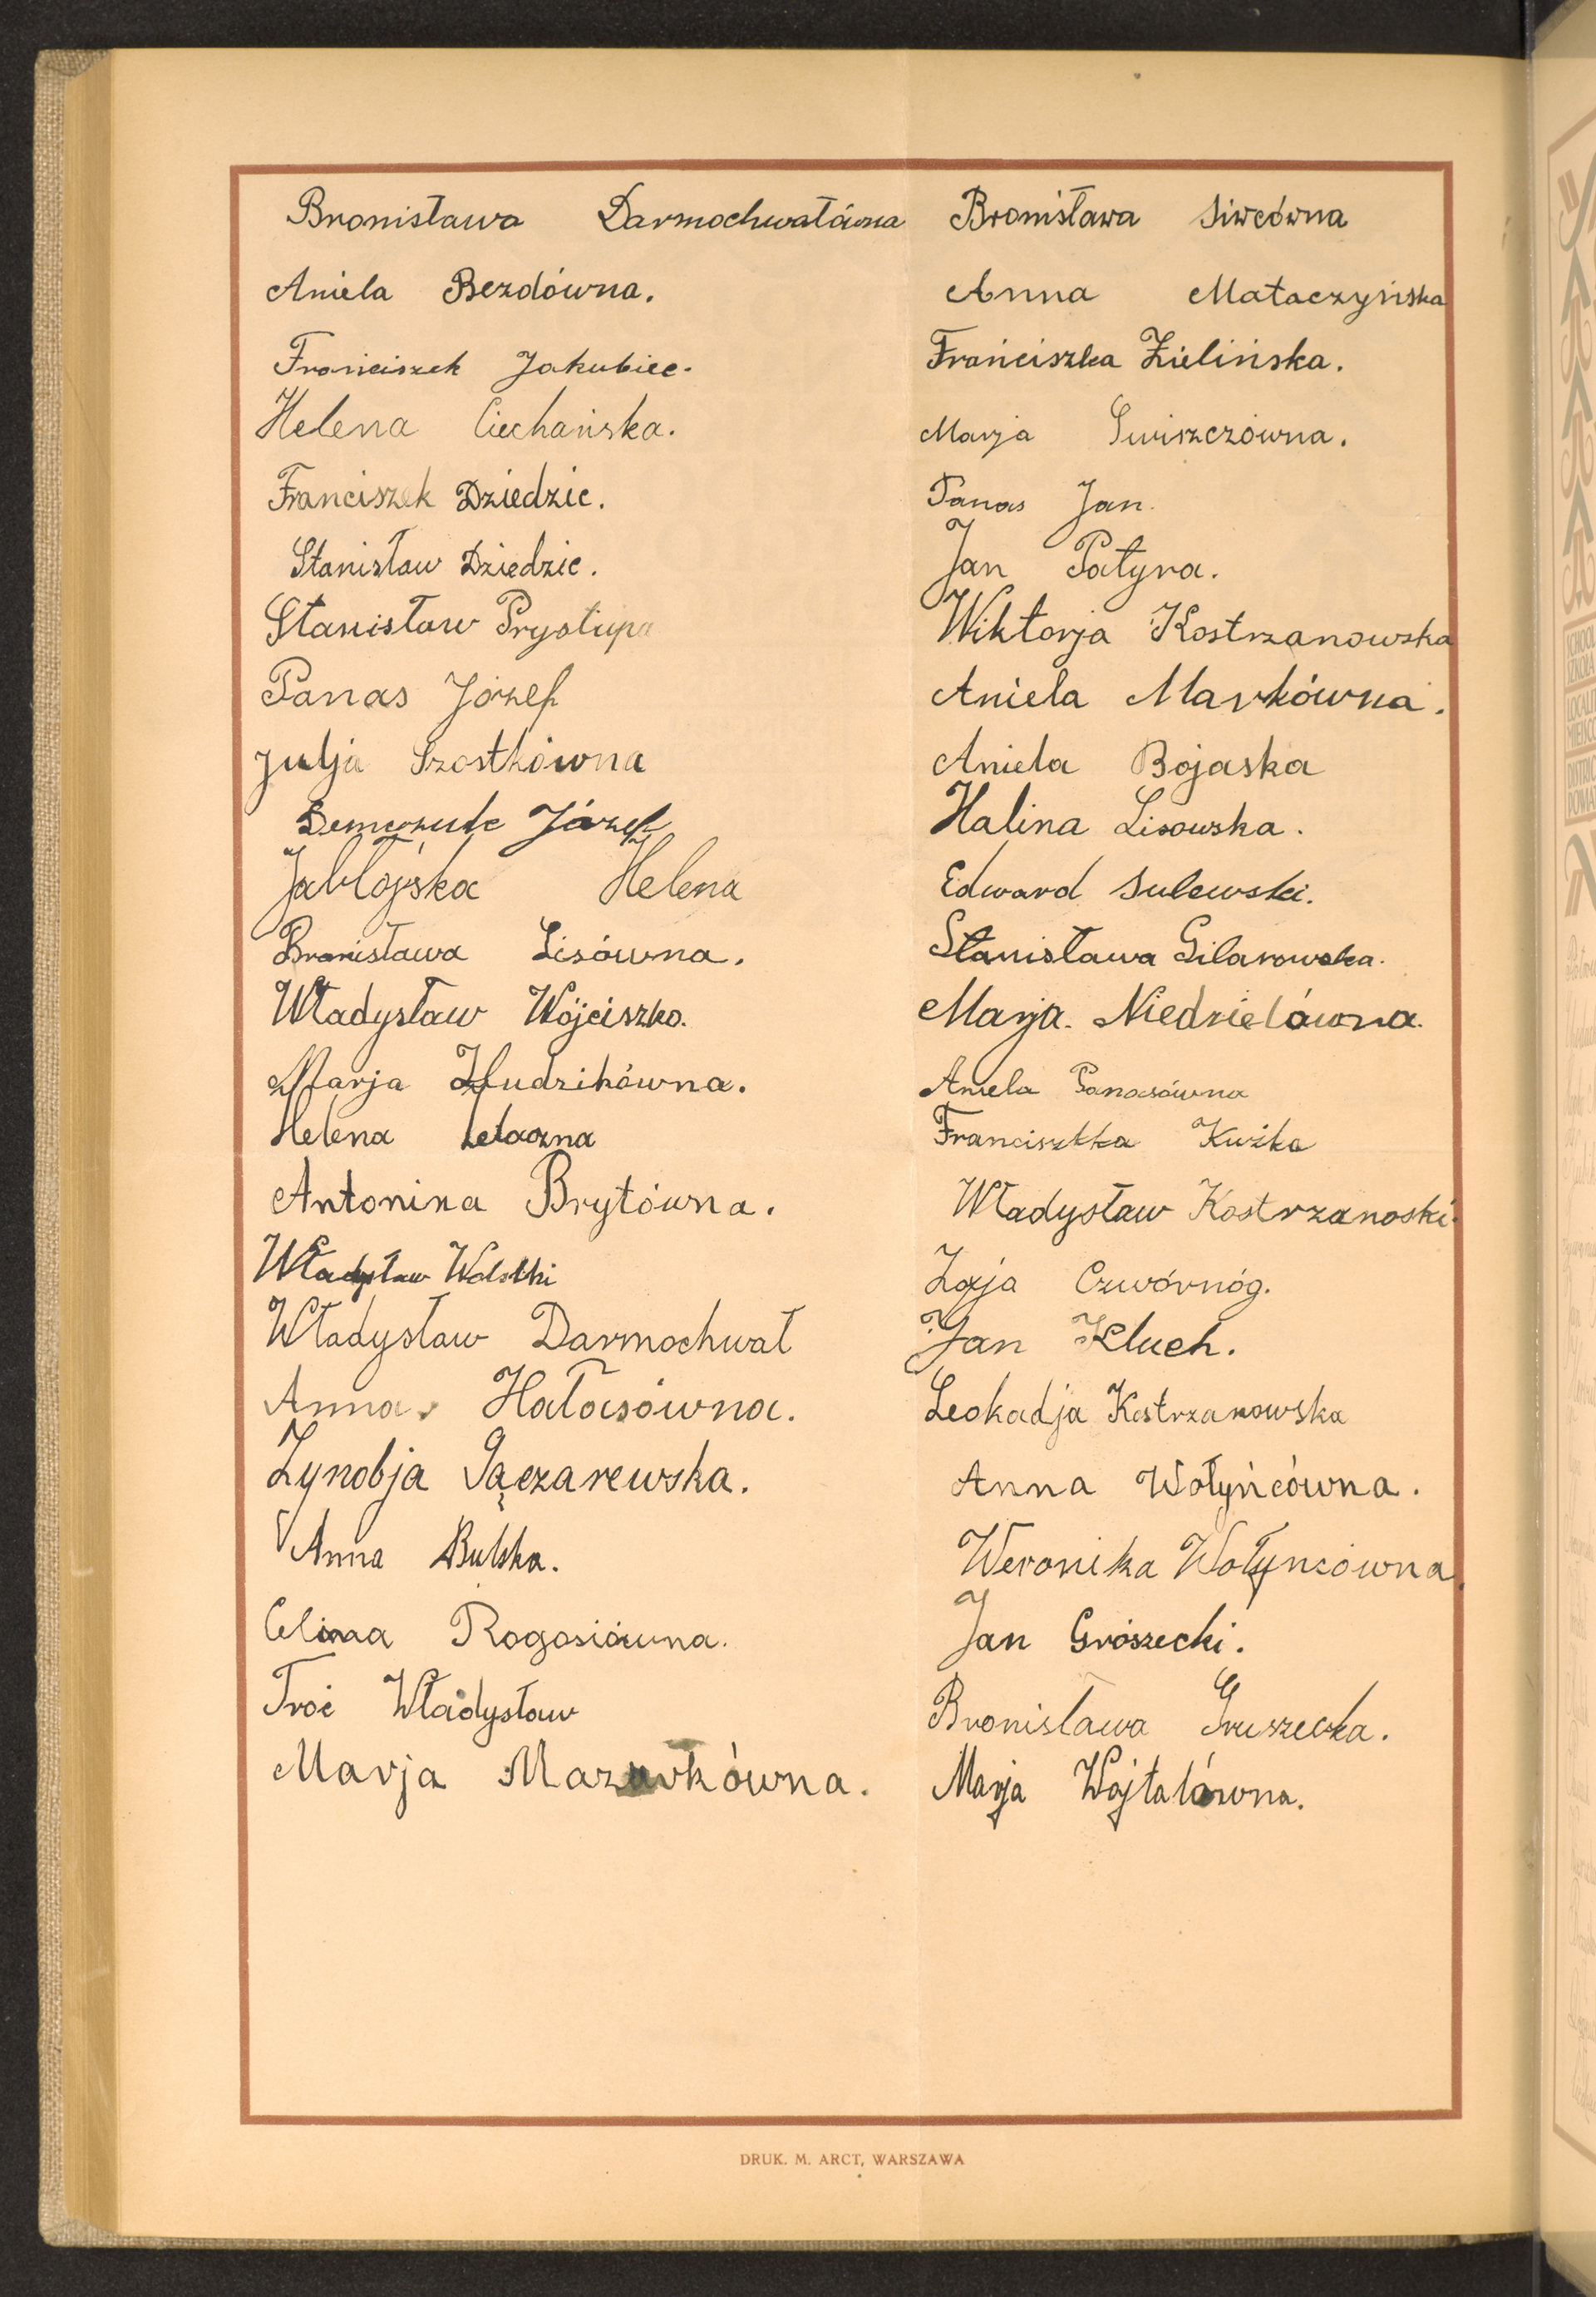 Bronisława Darmochwałówna
Aniela Bezdówna.
Franciszek Jakubiec.
Helena Ciechańska.
Franciszek Dziedzic.
Stanisław Dziedzic.
Stanisław Prystupa
Panas Józef
Julja Szostkówna
Demczuk Józef
Jabłojska Helena
Bronisława Lisówna.
Władysław Wójciszko.
Marja Hudzikówna.
Helena Letaczna
Antonina Brytówna.
Władysław Wolski
Władysław Darmochwał
Anna Hałasówna.
Zynobja Gączarewska.
Anna Bulska.
Celina Rogosiówna.
Troć Władysław
Marja Mazurkówna.
Bronisława Siwcówna
Anna Mataczyńska
Franciszka Zielińska.
Marja Świszczówna.
Panas Jan.
Jan Patyra.
Wiktorja Kostrzanowska
Aniela Markówna.
Aniela Bojaska
Halina Lisowska.
Edward Sulewski.
Stanisława Gilarowska.
Marja. Niedzielówna.
Aniela Panasówna
Franciszkka Kużka
Władysław Kostrzanoski.
Zoja Czwórnóg.
Jan Kluch.
Leokadja Kostrzanowska
Anna Wołyńcówna.
Weronika Wołyncówna.
Jan Grószecki.
Bronisława Gruszecka.
Marja Wójtalówna.
DRUK. M. ARCT, WARSZAWA